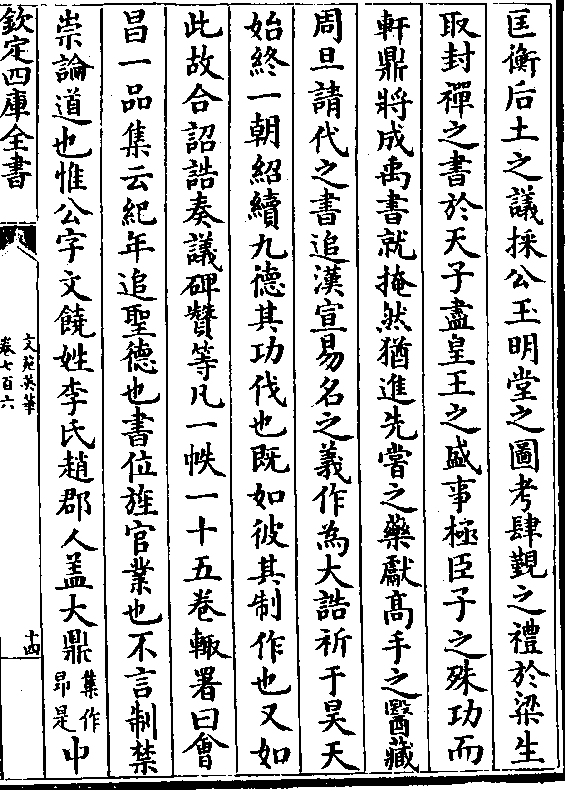 匡衡后土之議採公玉明堂之圖考肆覲之禮於梁生
取封禪之書於天子盡皇王之盛事極臣子之殊功而
軒鼎將成禹書就掩然猶進先嘗之藥獻高手之醫藏
周旦請代之書追漢宣易名之義作為大誥祈于昊天
始終一朝紹續九德其功伐也既如彼其制作也又如
此故合詔誥奏議碑贊等凡一帙一十五卷輙署曰會
昌一品集云紀年追聖德也書位旌官業也不言制禁
崇論道也惟公字文饒姓李氏趙郡人盖大鼎集作昂是中
欽定四庫全書
文苑英華
卷七百六
十四